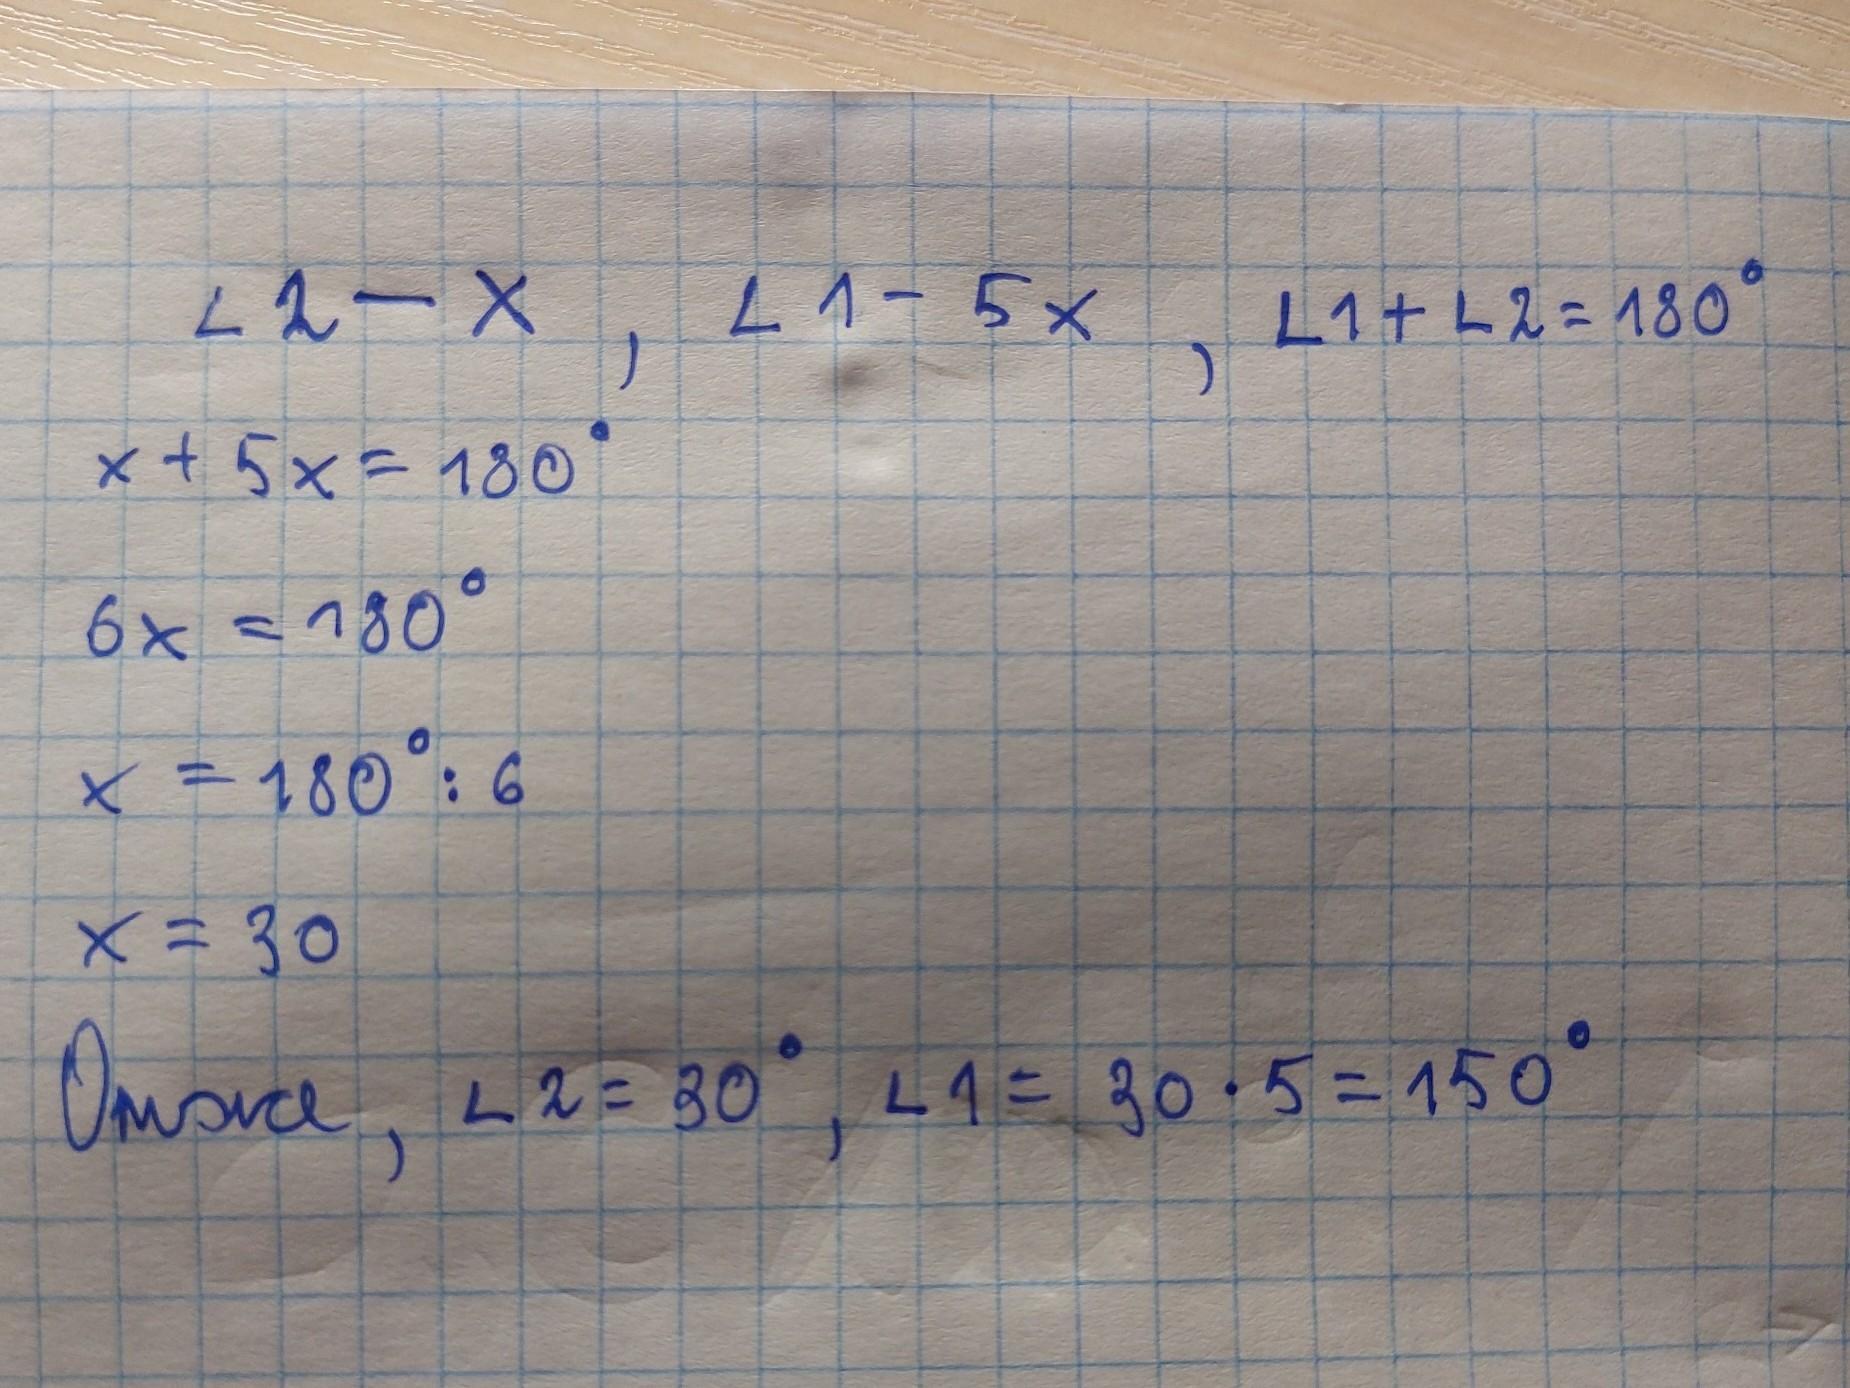 ∠2 — x, ∠1 - 5x, ∠1 + ∠2 = 180°
x + 5x = 180°
6x = 180°
x = 180° : 6
x = 30
Отже, ∠2 = 30°, ∠1 = 30 · 5 = 150°